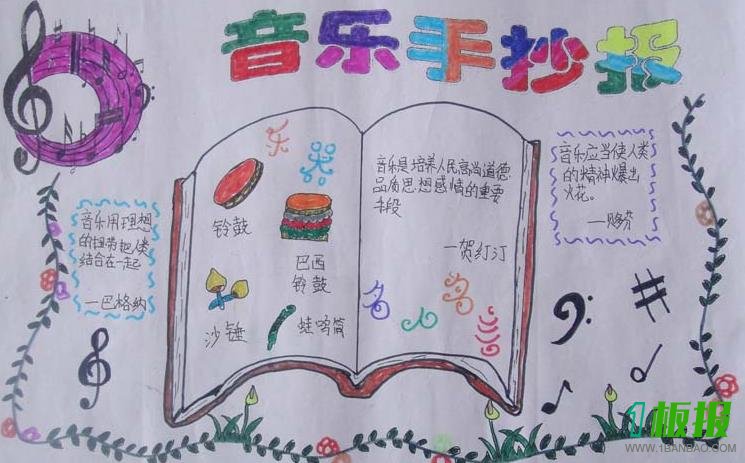 音乐手抄报
音乐用理想
的纽带把人类
结合在一起
—巴格纳
乐
铃鼓
巴西
铃鼓
沙锤
蛙鸣筒
音乐是培养人民高尚道德
品质思想感情的重要
手段
—贺红汀
音乐应当使人类
的精神爆出
火花。
—贝多芬
1板报
WWW.1BANBAO.COM